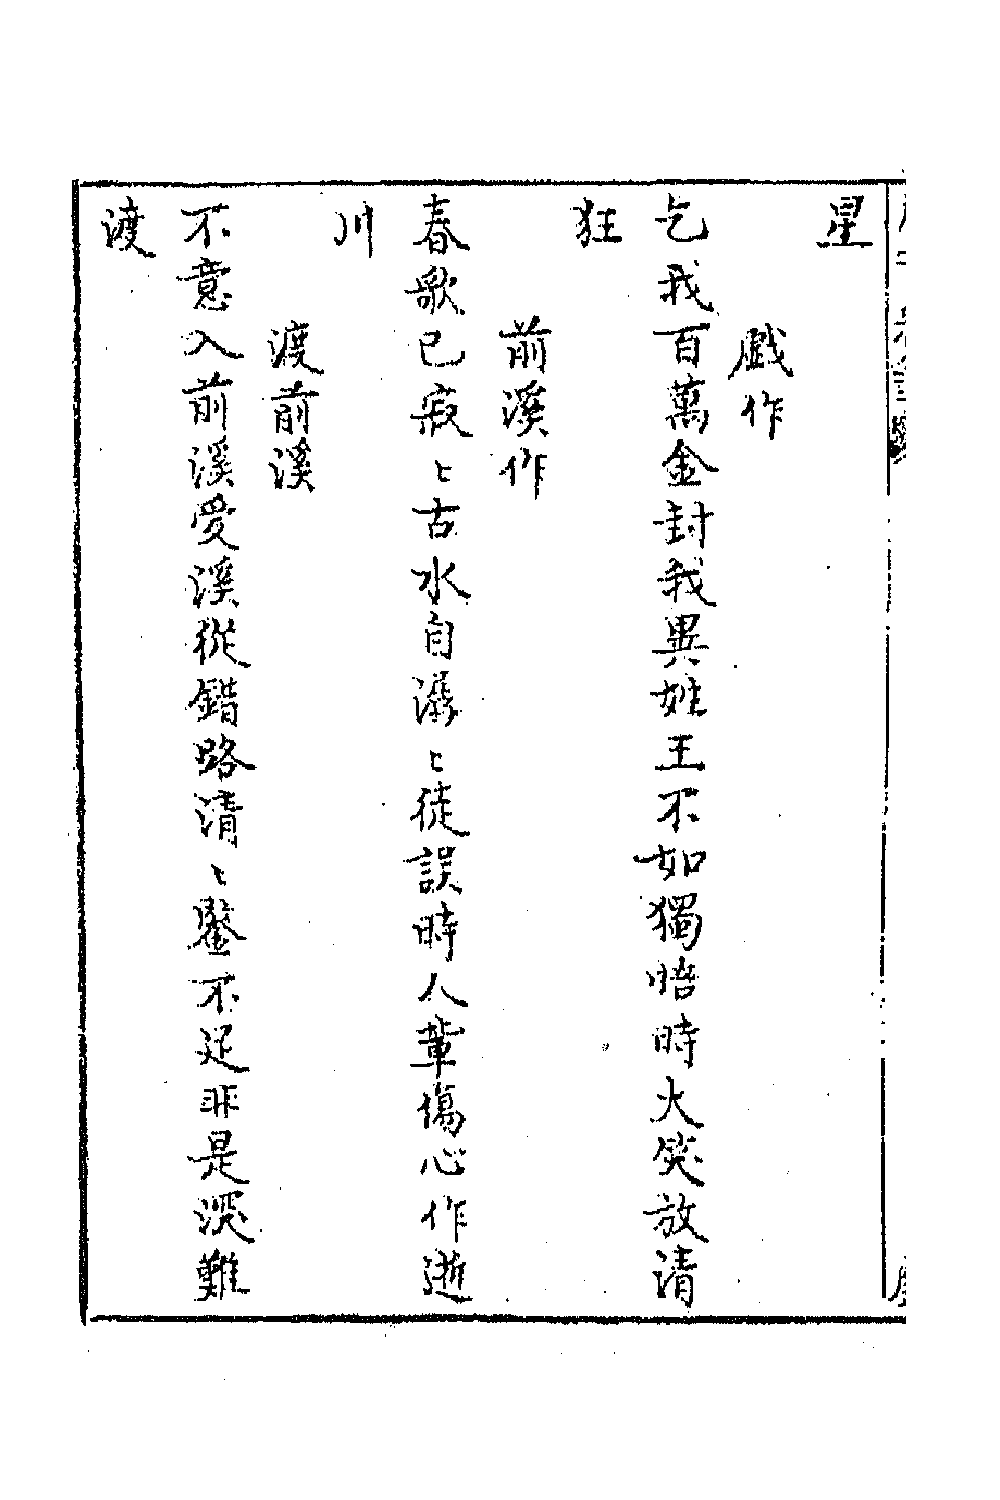 星
戲作
乞我百萬金封我異姓王不如獨悟時大笑放清
狂
前溪作
春歌已寂〻古水自潺〻徒誤時人輩傷心作逝
川
渡前溪
不意入前溪愛溪從錯路清〻鑒不足非是深難
渡